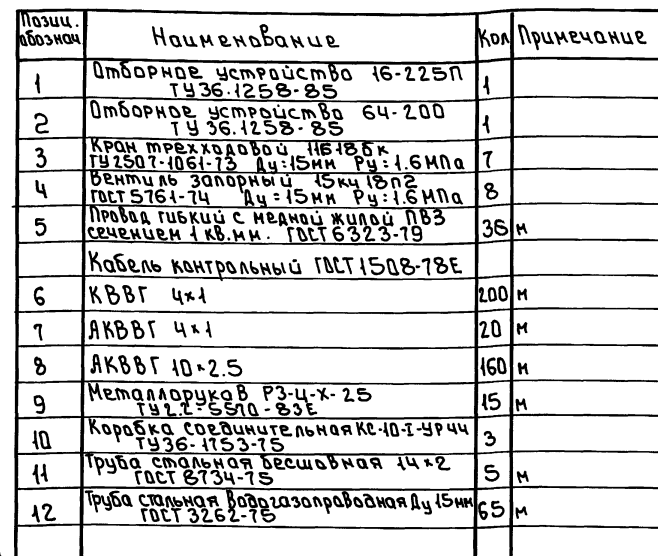 Позиц. обознач Наименование Кол Примечание
1 Отборное устройство 16-225П 1
ТУ36.1258-85
2 Отборное устройство 64-200 1
ТУ36.1258-85
3 Кран трехходовой 11Б18бк 7
ТУ2507-1061-73 Ду=15мм Ру=1.6МПа
4 Вентиль запорный 15кч18п2 8
ГОСТ5761-74 Ду=15мм Ру=1.6МПа
5 Провод гибкий с медной жилой ПВ3 36 м
сечением 1 кв.мм. ГОСТ6323-79
Кабель контрольный ГОСТ1508-78Е
6 КВВГ 4×1 200 м
7 АКВВГ 4×1 20 м
8 АКВВГ 10×2.5 160 м
9 Металлорукав РЗ-Ц-Х-25 15 м
ТУ22-5570-83Е
10 Коробка соединительная КС-10-I-УР44 3
ТУ36-1753-75
11 Труба стальная бесшовная 14×2 5 м
ГОСТ 8734-75
12 Труба стальная водогазопроводная Ду15мм 65 м
ГОСТ 3262-75